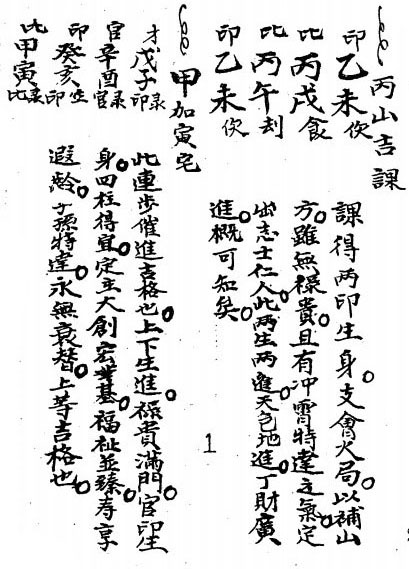 丙山吉課
印乙未伤
比丙戌食
比丙午刦
印乙未伤
課得兩印生身。支會火局。以補山
方。雖無祿貴。且有冲霄特達之氣。定
出志士仁人。此兩生兩進。天包地進。丁財廣
進。概可知矣。
甲加寅宅
才戊子印录
官辛酉官录
印癸亥印生
比甲寅比录
此連步催進吉格也。上下生進。祿貴滿門。官印生
身。四柱得宜。定主大創宏業基。福祉並臻。寿享
遐龄。子孫特達。永無衰替。上等吉格也。
1